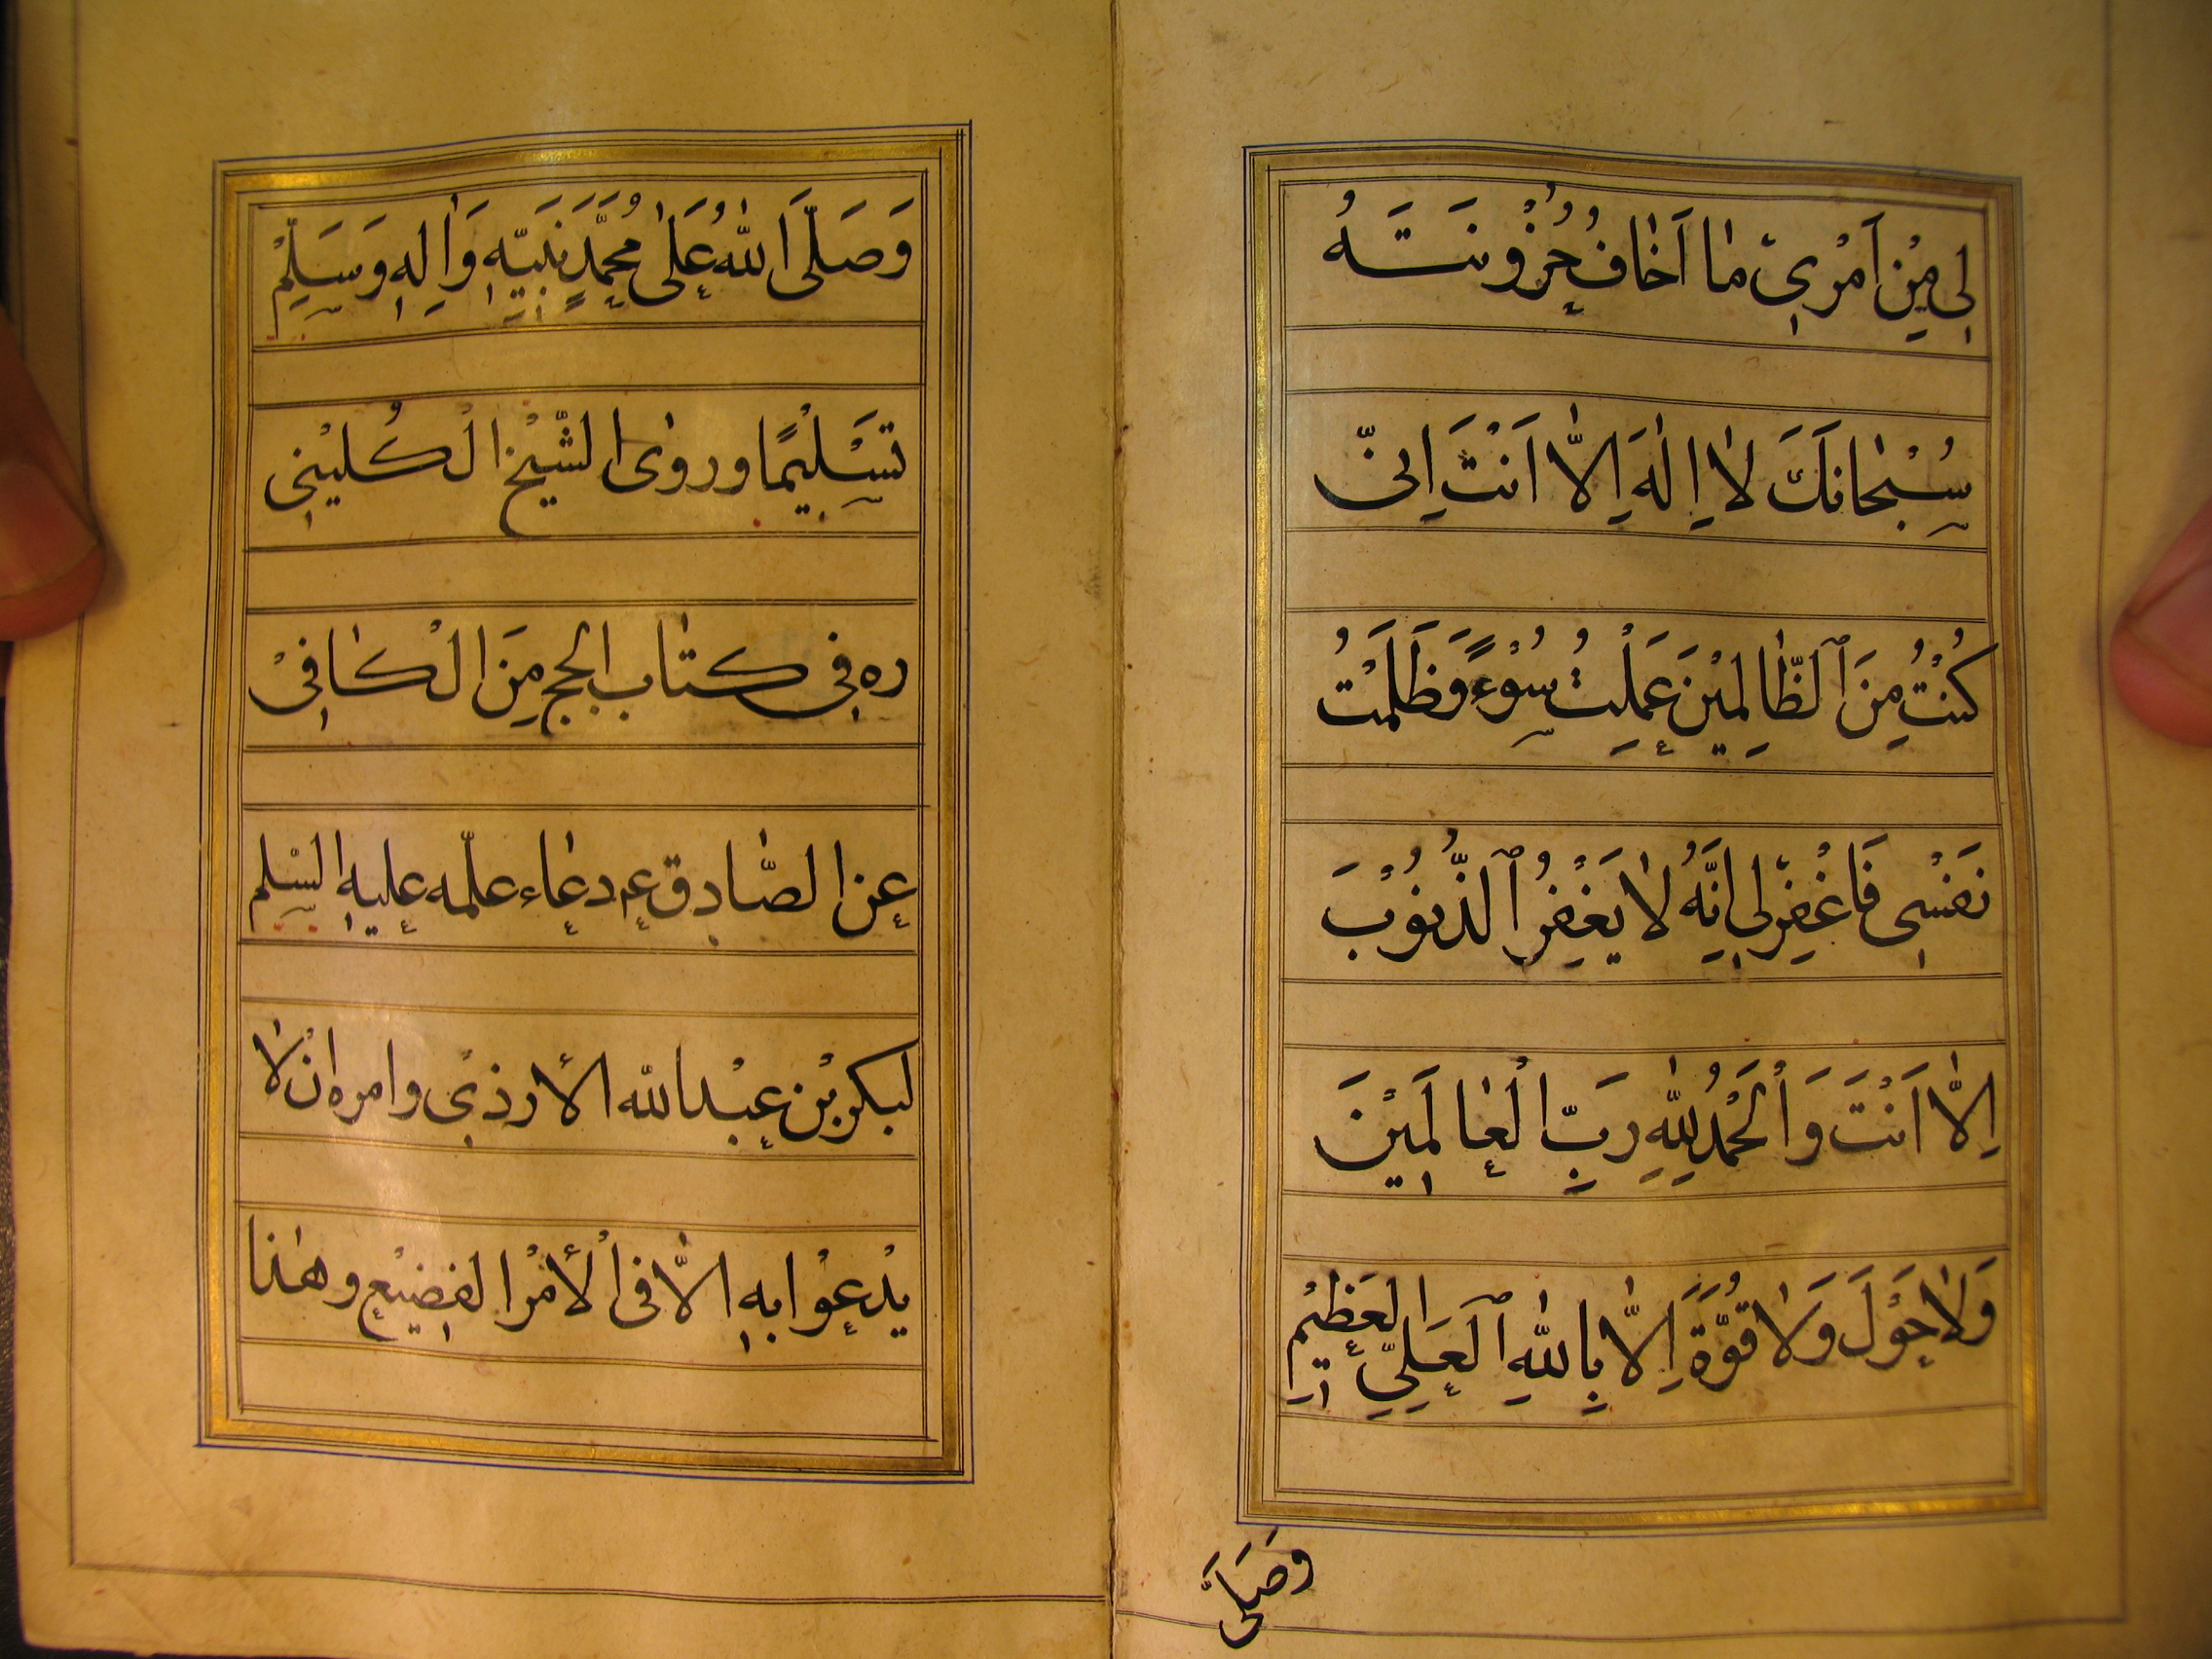 لِي مِنْ اَمْرِيْ مٰا اَخٰافُ حُزُونَتَهُ
سُبْحٰانَكَ لٰا اِلٰهَ اِلّٰا اَنْتَ اِنّى
كُنْتُ مِنَ ٱلظّٰالِمِيْنَ عَمِلْتُ سُوْءً وَظَلَمْتُ
نَفْسِى فَاغْفِرْلِى اِنَّهُ لٰا يَغْفِرُ ٱلذُّنُوْبَ
اِلّٰا اَنْتَ وَاْلحَمْدُ لِلّٰهِ رَبِّ اْلعٰالَمِيْنَ
وَلٰا حَوْلَ وَلٰا قُوَّةَ اِلّٰا بِاللّٰهِ ٱلعَلِىِّ العَظِيْمِ
وَصَلَّى
وَصَلَّى اللّٰهُ عَلٰى مُحَمَّدٍ نَبِيِّهِ وَاٰلِهِ وَسَلِّمْ
تَسْلِيْمًا وروٰى الشّيْخ الْكُلينِى
ره فِى كتٰاب الحج مِنَ الْكٰافِىْ
عن الصّٰادق ع دعٰاء علّمه عليهِ السّلم
لبكر بْن عبْدالله الأرذىْ وامره انْ لٰا
يدْعوْا بهِ الّٰا فى اْلأمْر الفضِيْع وهٰذا